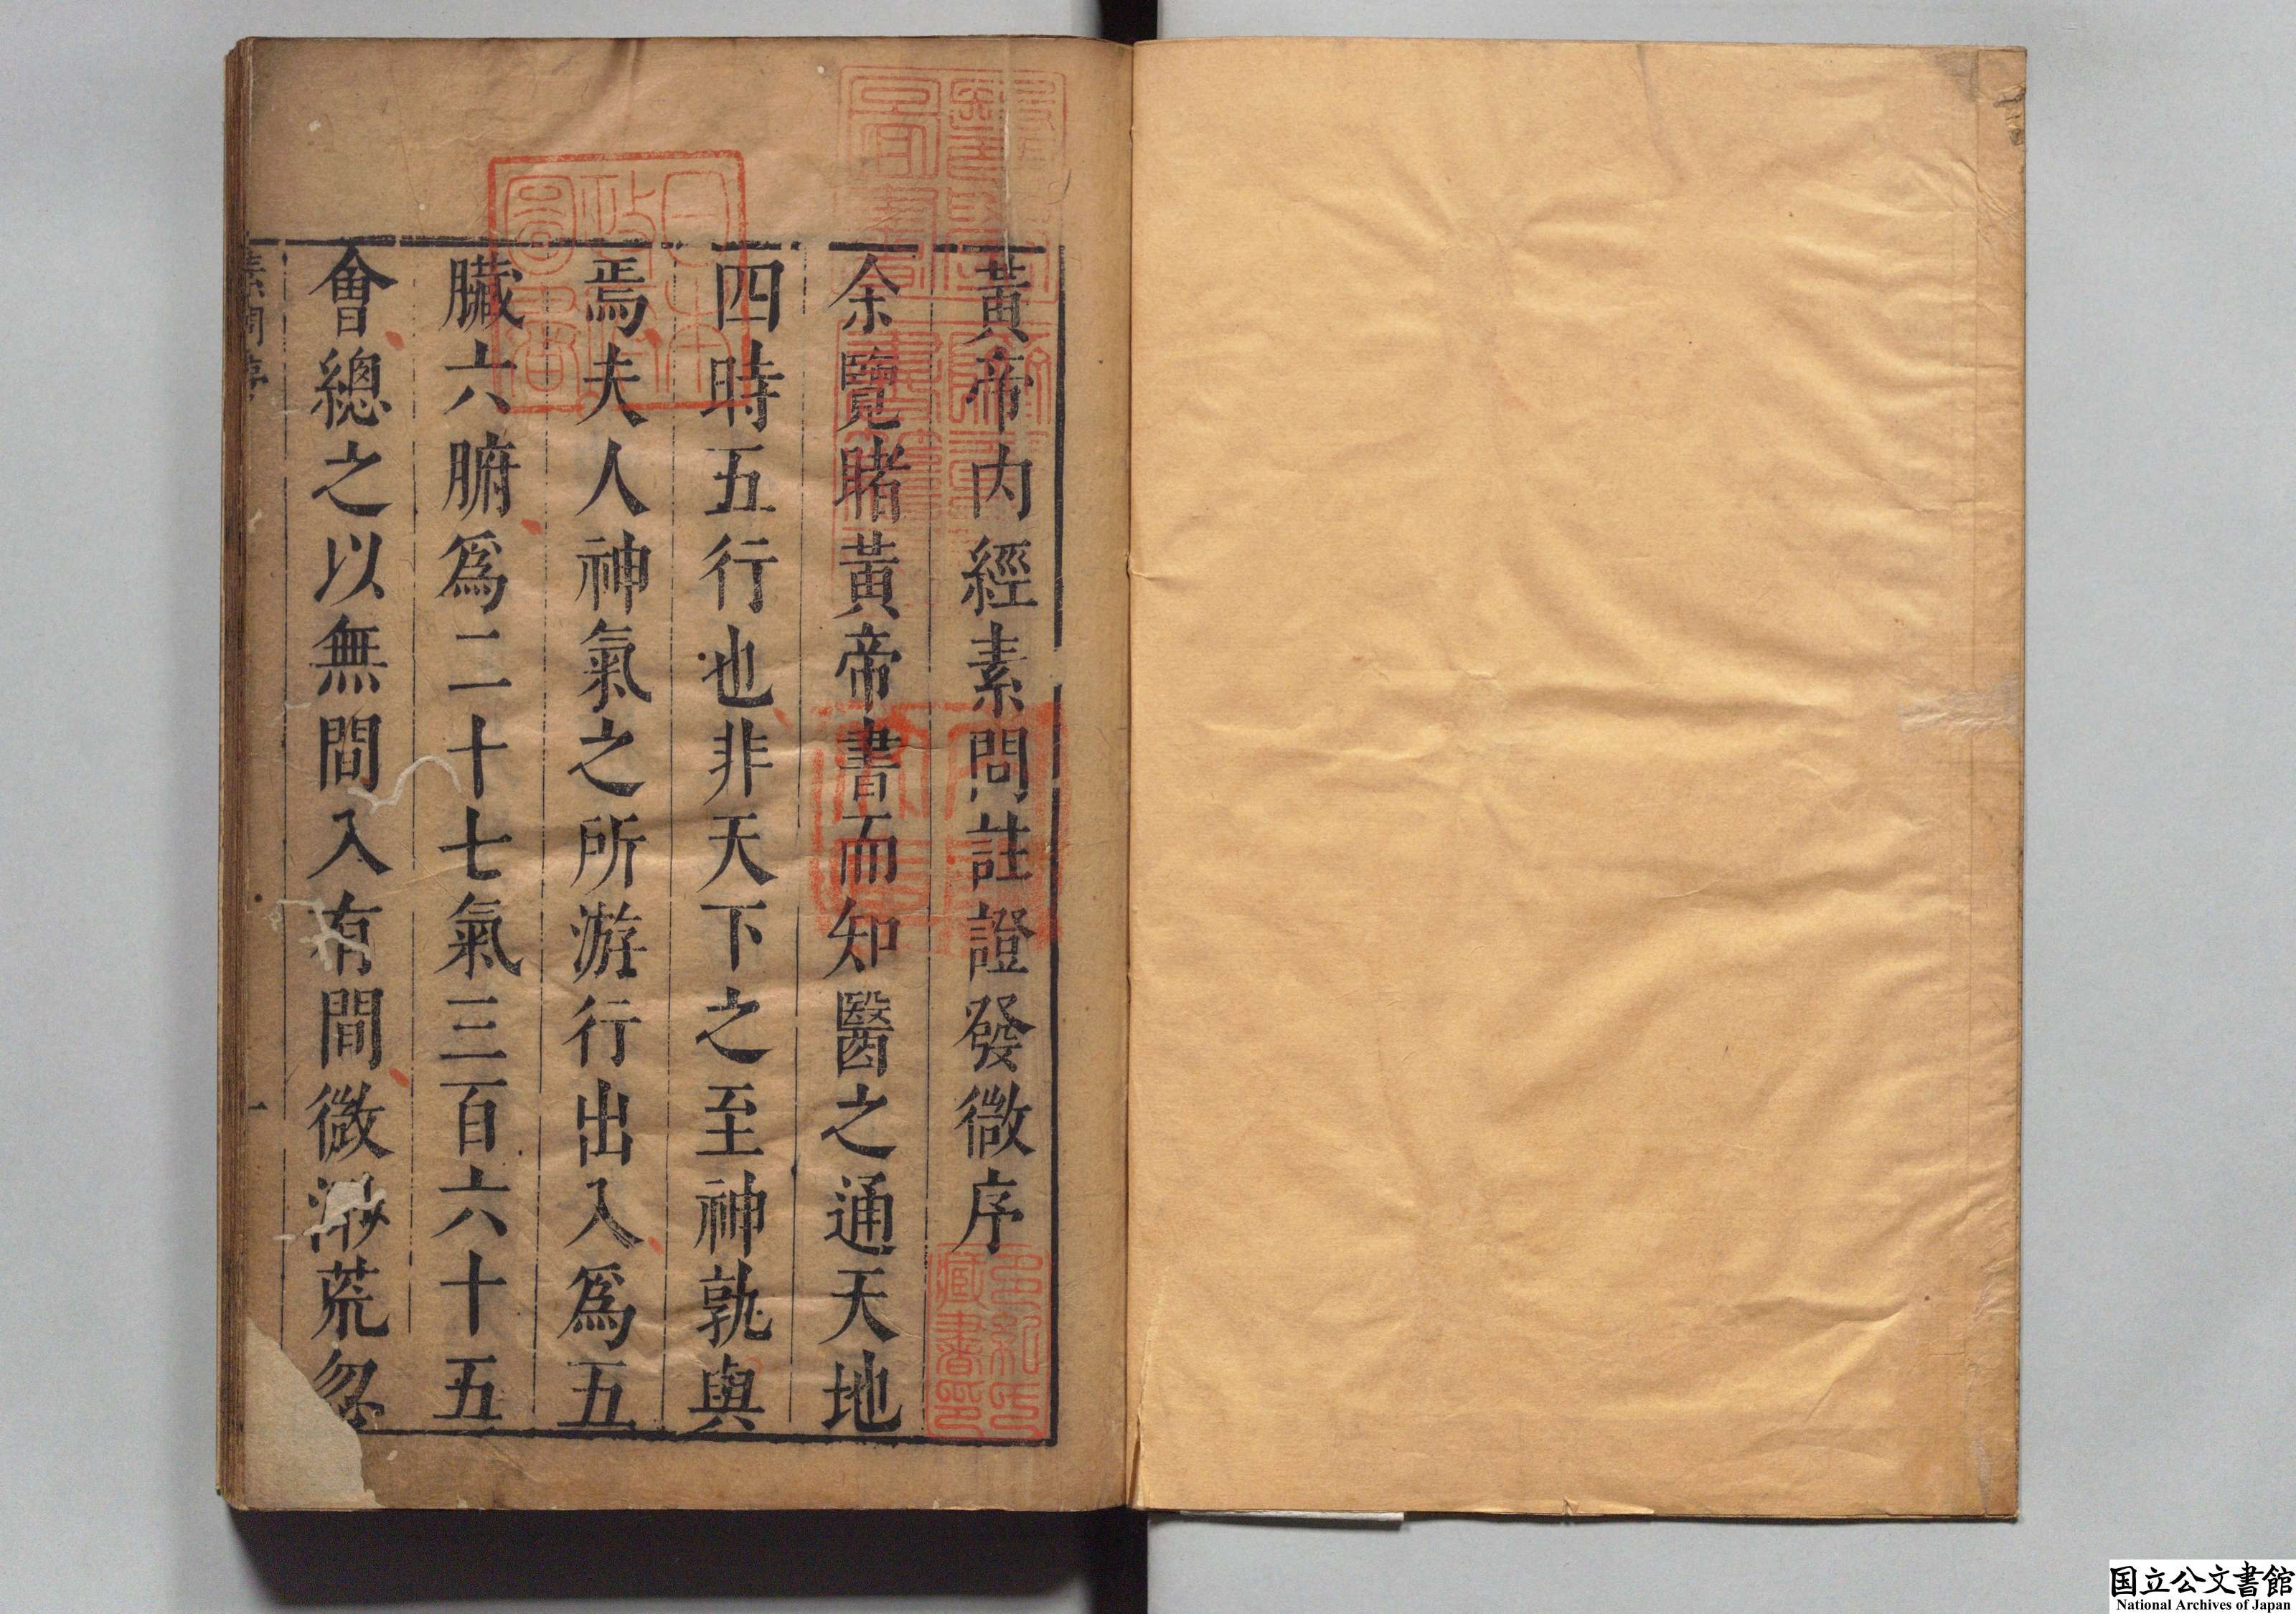 黃帝内經素問註證發微序
余覽睹黃帝書而知醫之通天地
四時五行也非天下之至神孰與
焉夫人神氣之所游行出入爲五
臟六腑爲二十七氣三百六十五
會總之以無間入有間微渺荒忽
素問序
一
日本
政府
圖書
藏書印
国立公文書館
National Archives of Japan